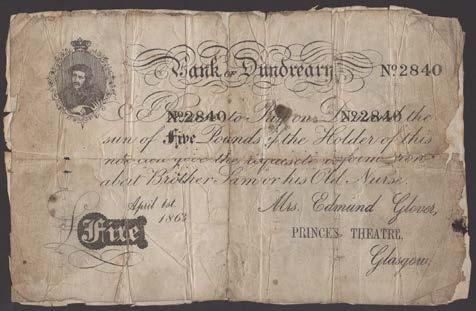 Bank of Dundreary No 2840
No 2840 to Pay on D the No 2840
sum of Five Pounds if the Holder of this
note can give the requesite
abeit Brother Sam or his Old Nurse.
April 1st.
186
Mrs. Edmund Glover,
£ Five
PRINCE'S THEATRE,
Glasgow.